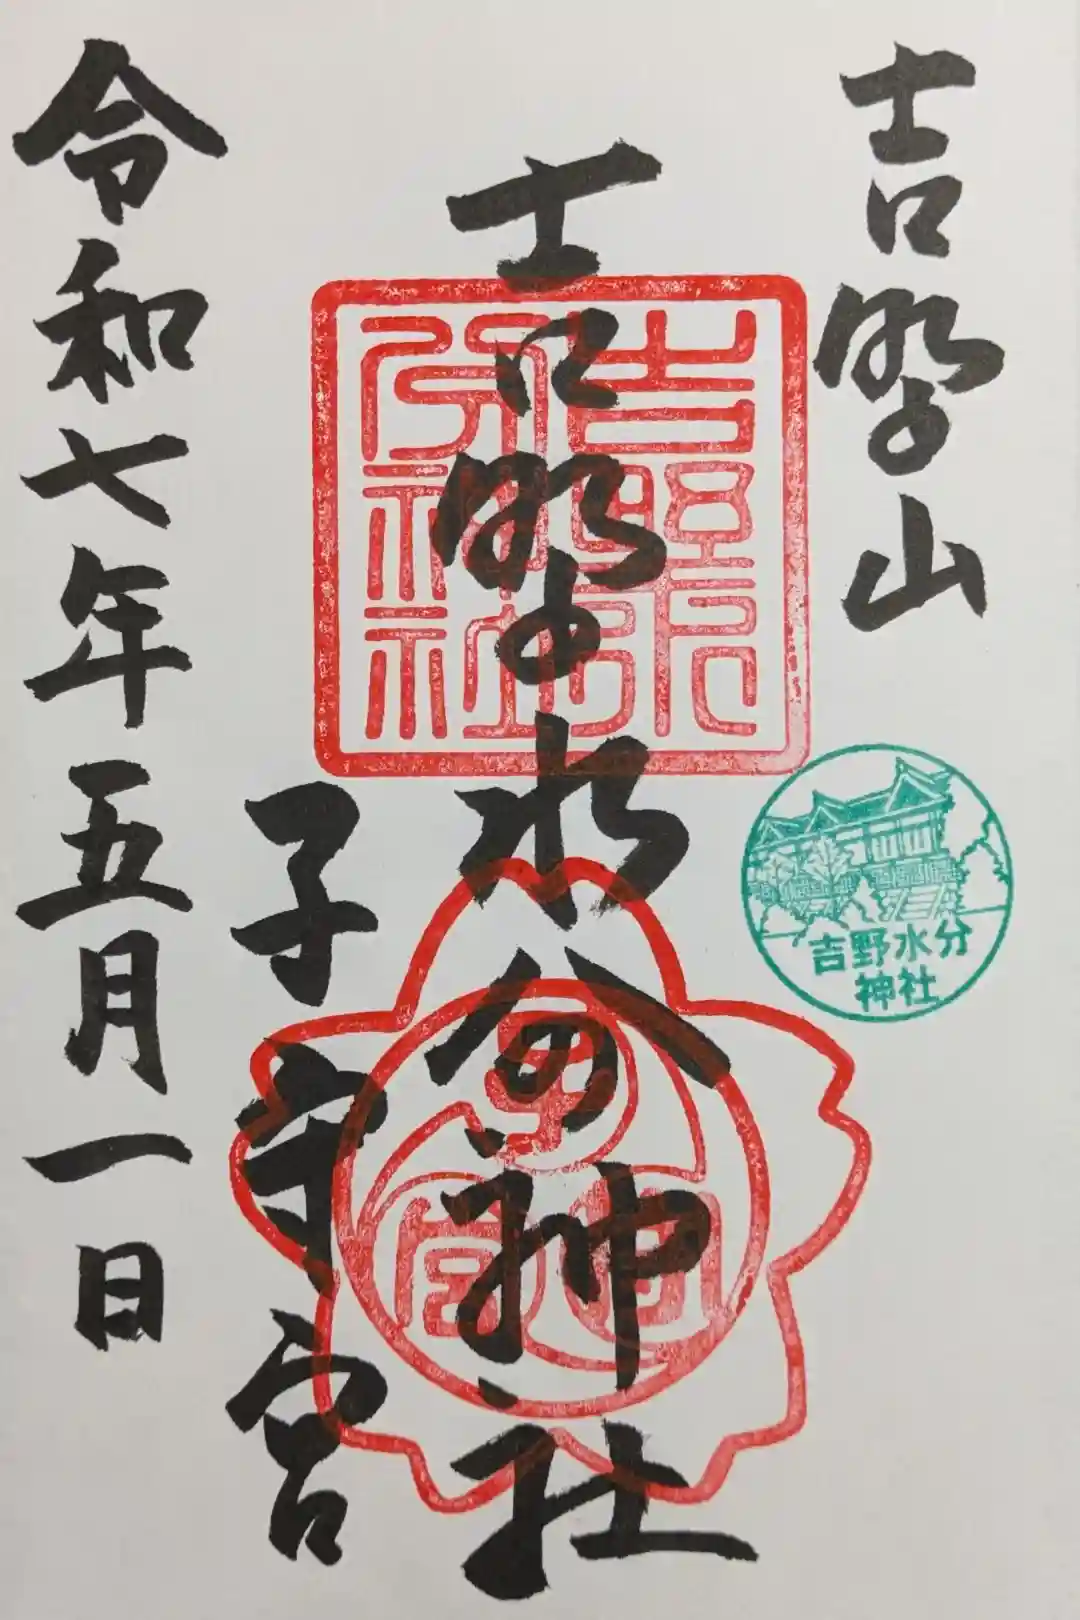 吉野山
吉野水分神社
吉野水分神社
子守宮
子守宮
令和七年五月一日
吉野水分
神社